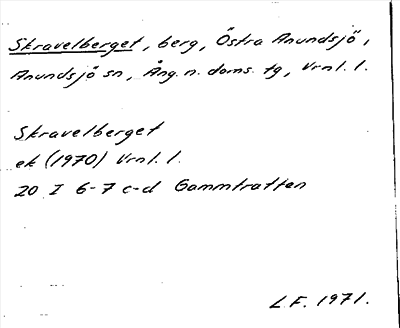 Skravelberget, berg, Östra Anundsjö,
Anundsjö sn, Ång. n. doms. tg, Vrnl. l.
Skravelberget
ek (1970) Vrnl. l.
20 I 6-7 c-d Gammtratten
L.F. 1971.